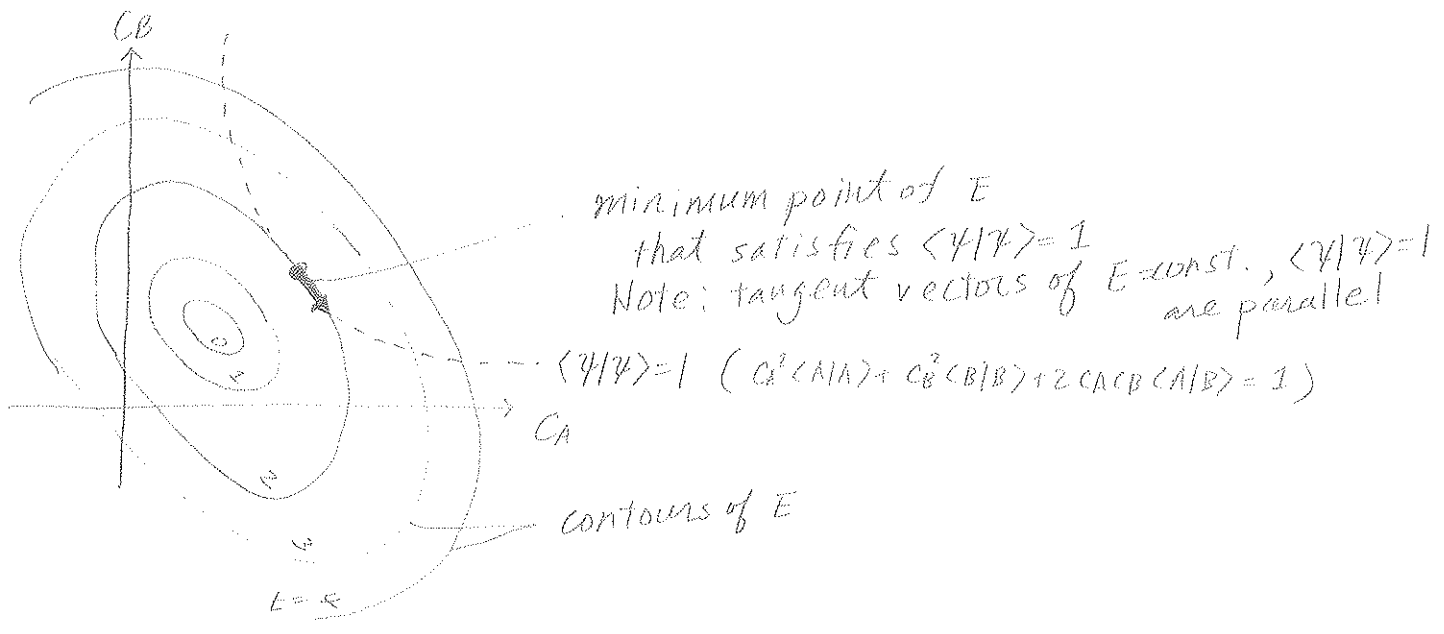 CB
minimum point of E
that satisfies <Ψ|Ψ>=1
Note: tangent vectors of E=const., <Ψ|Ψ>=1
are parallel
<Ψ|Ψ>=1 ( CA²<A|A>+ CB²<B|B>+2CACB<A|B>=1 )
CA
0
1
2
contours of E
3